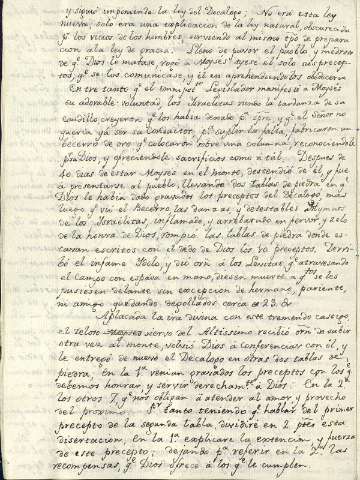 y siguió imponiendo la ley del Decálogo. No era esta ley
nueva, solo era una explicacion de la ley natural, obscurecida
pr los vicios de los hombres, sirviendo al mismo tpo de prepara
cion á la ley de gracia. Lleno de pavor el pueblo y medroso
de qe Dios le matase, rogó á Moyses oyese él solo sus precep-
tos, qe se los comunicase, y él en aprehendiendolos obedeceria
Entre tanto qe el Legislador manifestó á Moyses
su adorable voluntad, los Israelitas viendo la tardanza de su
caudillo creyeron qe los habia dexado pa spre, y qe el Señor no
queria ya ser su conductor, pa suplir la falta, fabricaron un
becerro de oro qe colocaron sobre una columna, reconociendole
pr Dios, y ofreciendole sacrificios como a tal. Despues de
40 dias de estar Moyses en el monte, descendió de él, y fue
á presentarse al pueblo, llevando dos tablas de piedra en qe
Dios le habia dado grabados los preceptos del Decalogo mas
luego qe vió el becerro, las danzas y detestables
de los Israelitas, inflamado, y arrebatado en fervor, y zelo
de la honra de Dios, rompió las tablas de piedra donde es-
taban escritos con el dedo de Dios los 10 preceptos, derri-
bó el infame Idolo, y dió orn á los Levitas qe atravesando
el campo con espada en mano, diesen muerte a qtos se les
pusiesen delante sin excepcion de hermano, pariente,
ni amigo quedando degollados cerca de 23.
Aplacada la ira divina con este tremendo castigo,
el zeloso siervo del Altissimo recibió orn de subir
otra vez al monte, volvió Dios á conferenciar con él, y
le entregó de nuevo el Decalogo en otras dos tablas de
piedra, en la 1a venian gravados los preceptos con los qe
debemos honrar, y servir derechamte á Dios. En la 2a
los otros 7, qe nos obligan á atender al amor y provecho
del proximo. Pr tanto teniendo qe hablar del primer
precepto de la segunda tabla dividiré en 2 ptes esta
disertacion, en la 1a explicaré la extencion, y fuerza
de este precepto; dejando pa referir en la 2a las
recompensas, qe Dios ofrece á los qe le cumplen.